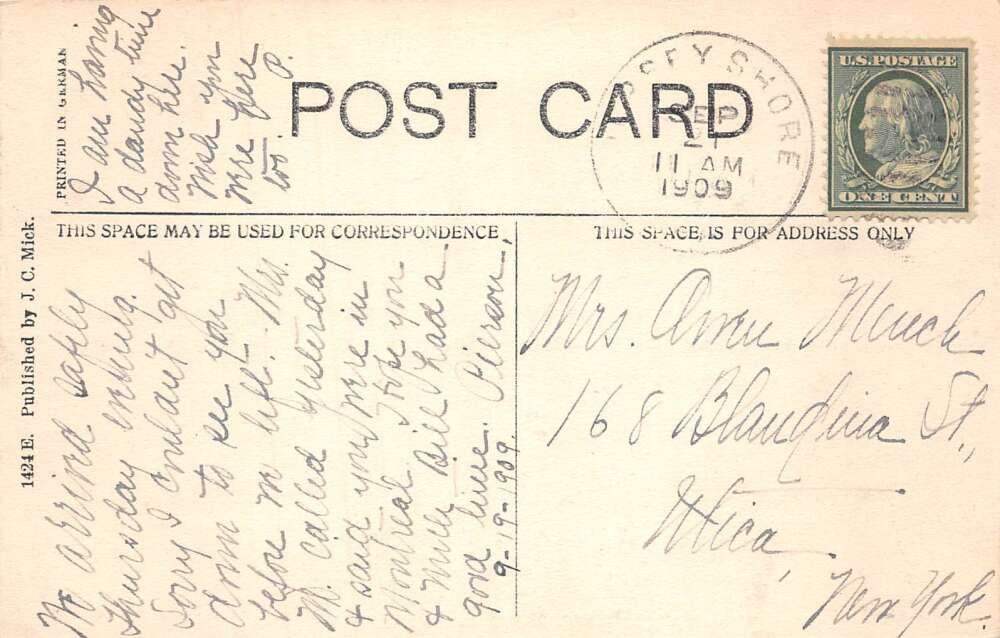 PRINTED IN GERMAN
I am having
a dandy time
down here.
Wish you
were here
too. P.
POST CARD
JERSEY SHORE
SEP
21
11 AM
1909
U.S. POSTAGE
ONE CENT
THIS SPACE MAY BE USED FOR CORRESPONDENCE
THIS SPACE IS FOR ADDRESS ONLY
1424 E. Published by J. C. Mick.
We arrived safely
Thursday evening.
Sorry I couldn't get
down to see you
before we left. Mrs.
M. called yesterday
& said you were in
Montreal. I hope you
& Bill had a
good time. Pierson.
9-19-1909.
Mrs. Owen
168 Blandina St.,
Utica,
New York.